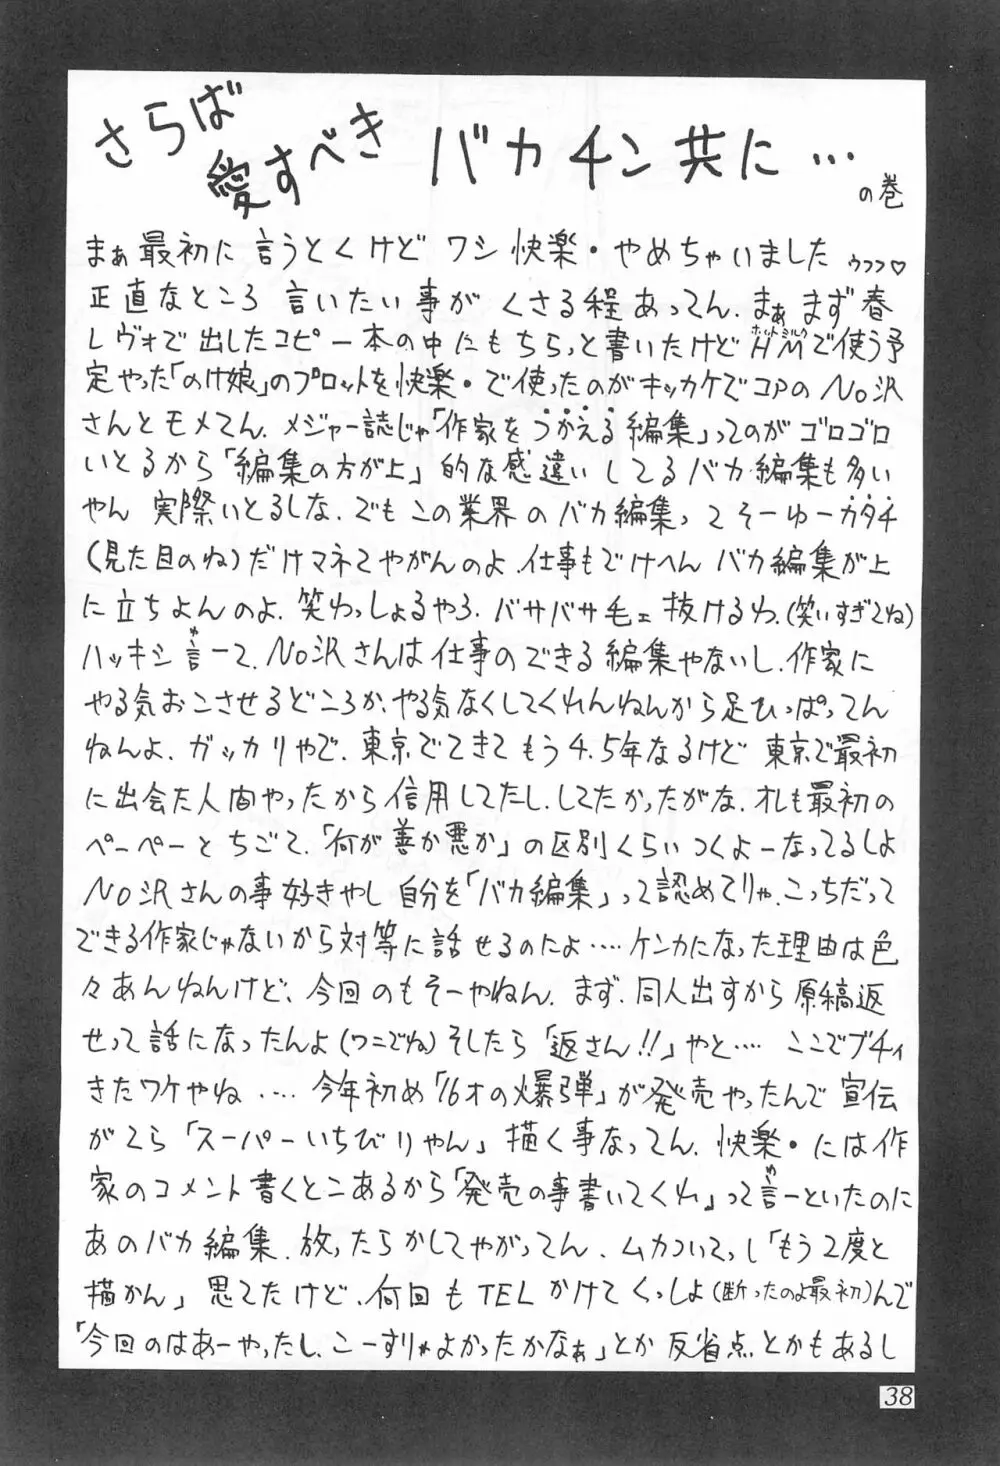 さらば
愛すべき バカチン共に…
の巻
まぁ最初に言うとくけど ワシ 快楽・やめちゃいました ゥフフ♡
正直なところ 言いたい事が くさる程あってん. まぁ まず春
レヴォで出したコピー本の中にもちらっと書いたけどHMで使う予
ホットミルク
定やった「のけ娘」のプロットを快楽・で使ったのがキッカケでコアのNo沢
さんとモメてん. メジャー誌じゃ「作家をつかえる編集」ってのがゴロゴロ
いとるから「編集の方が上」的な感違いしてるバカ編集も多い
やん 実際いとるしな. でもこの業界のバカ編集ってそーゆーカタチ
(見た目のね)だけマネてやがんのよ. 仕事もでけへん バカ編集が上
に立ちよんのよ. 笑わっしょるやろ. バサバサ毛ェ抜けるわ.(笑いすぎてね)
ハッキシ言って. No沢さんは仕事のできる編集やないし. 作家に
ゆ
やる気おこさせるどころか. やる気なくしてくれんねんから足ひっぱってん
ねんよ. ガッカリやで. 東京でてきてもう4.5年なるけど 東京で最初
に出会た人間やったから信用してたし. してたかったがな. オレも最初の
ペーペーとちごて.「何が善か悪か」の区別くらいつくよーなってるしよ
No沢さんの事好きやし 自分を「バカ編集」って認めてりゃ. こっちだって
できる作家じゃないから対等に話せるのによ…. ケンカになった理由は色
々あんねんけど、今回のもそーやねん. まず. 同人出すから原稿返
せって話になったんよ(ワニでね) そしたら「返さん!!」やと…. ここでブチィ
きたワケやね …. 今年初め「16才の爆弾」が発売やったんで宣伝
がてら「スーパーいちびりやん」描く事なってん. 快楽・には作
家のコメント書くとこあるから「発売の事書いてくれ」って言ーといたのに
ゆ
あのバカ編集. 放ったらかしてやがってん. ムカついてっし「もう2度と
描かん」思てたけど. 何回もTELかけてくっしよ(断ったのよ最初)んで
「今回のはあーやったし. こーすりゃよかったかなぁ」とか反省点とかもあるし
38